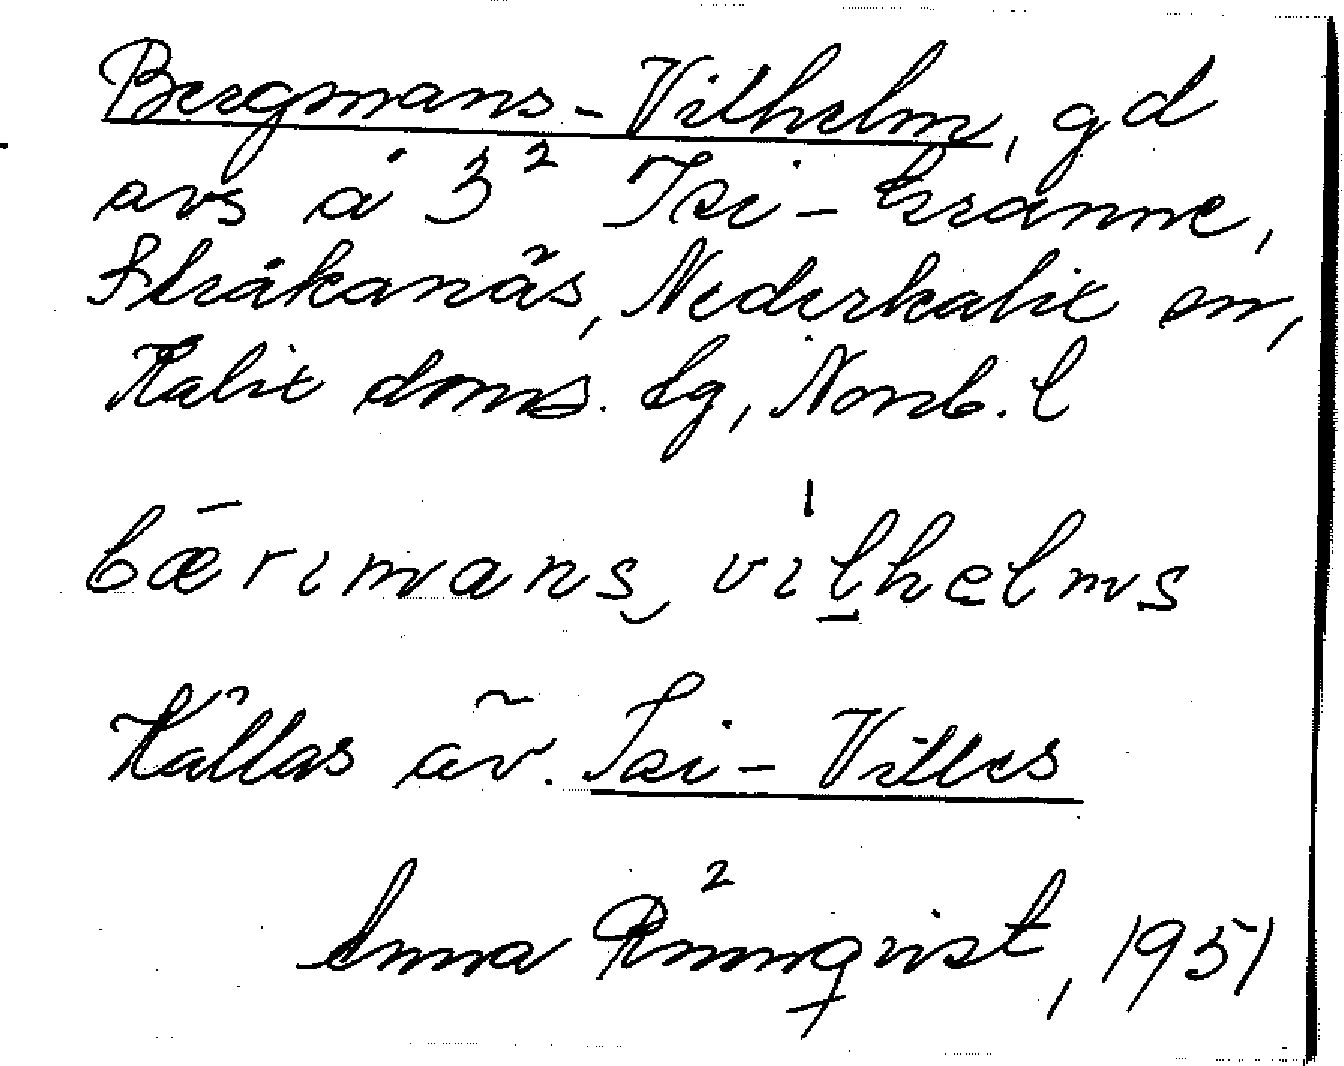 Bergmans-Vilhelm, gd
avs å 3² Isi-Kranne,
Stråkanäs, Nederkalix sn,
Kalix doms. lg, Norrb. l
bǣrimans, vilhelms
Kallas äv. Isi-Villes
Anna Rönnqvist, 1951